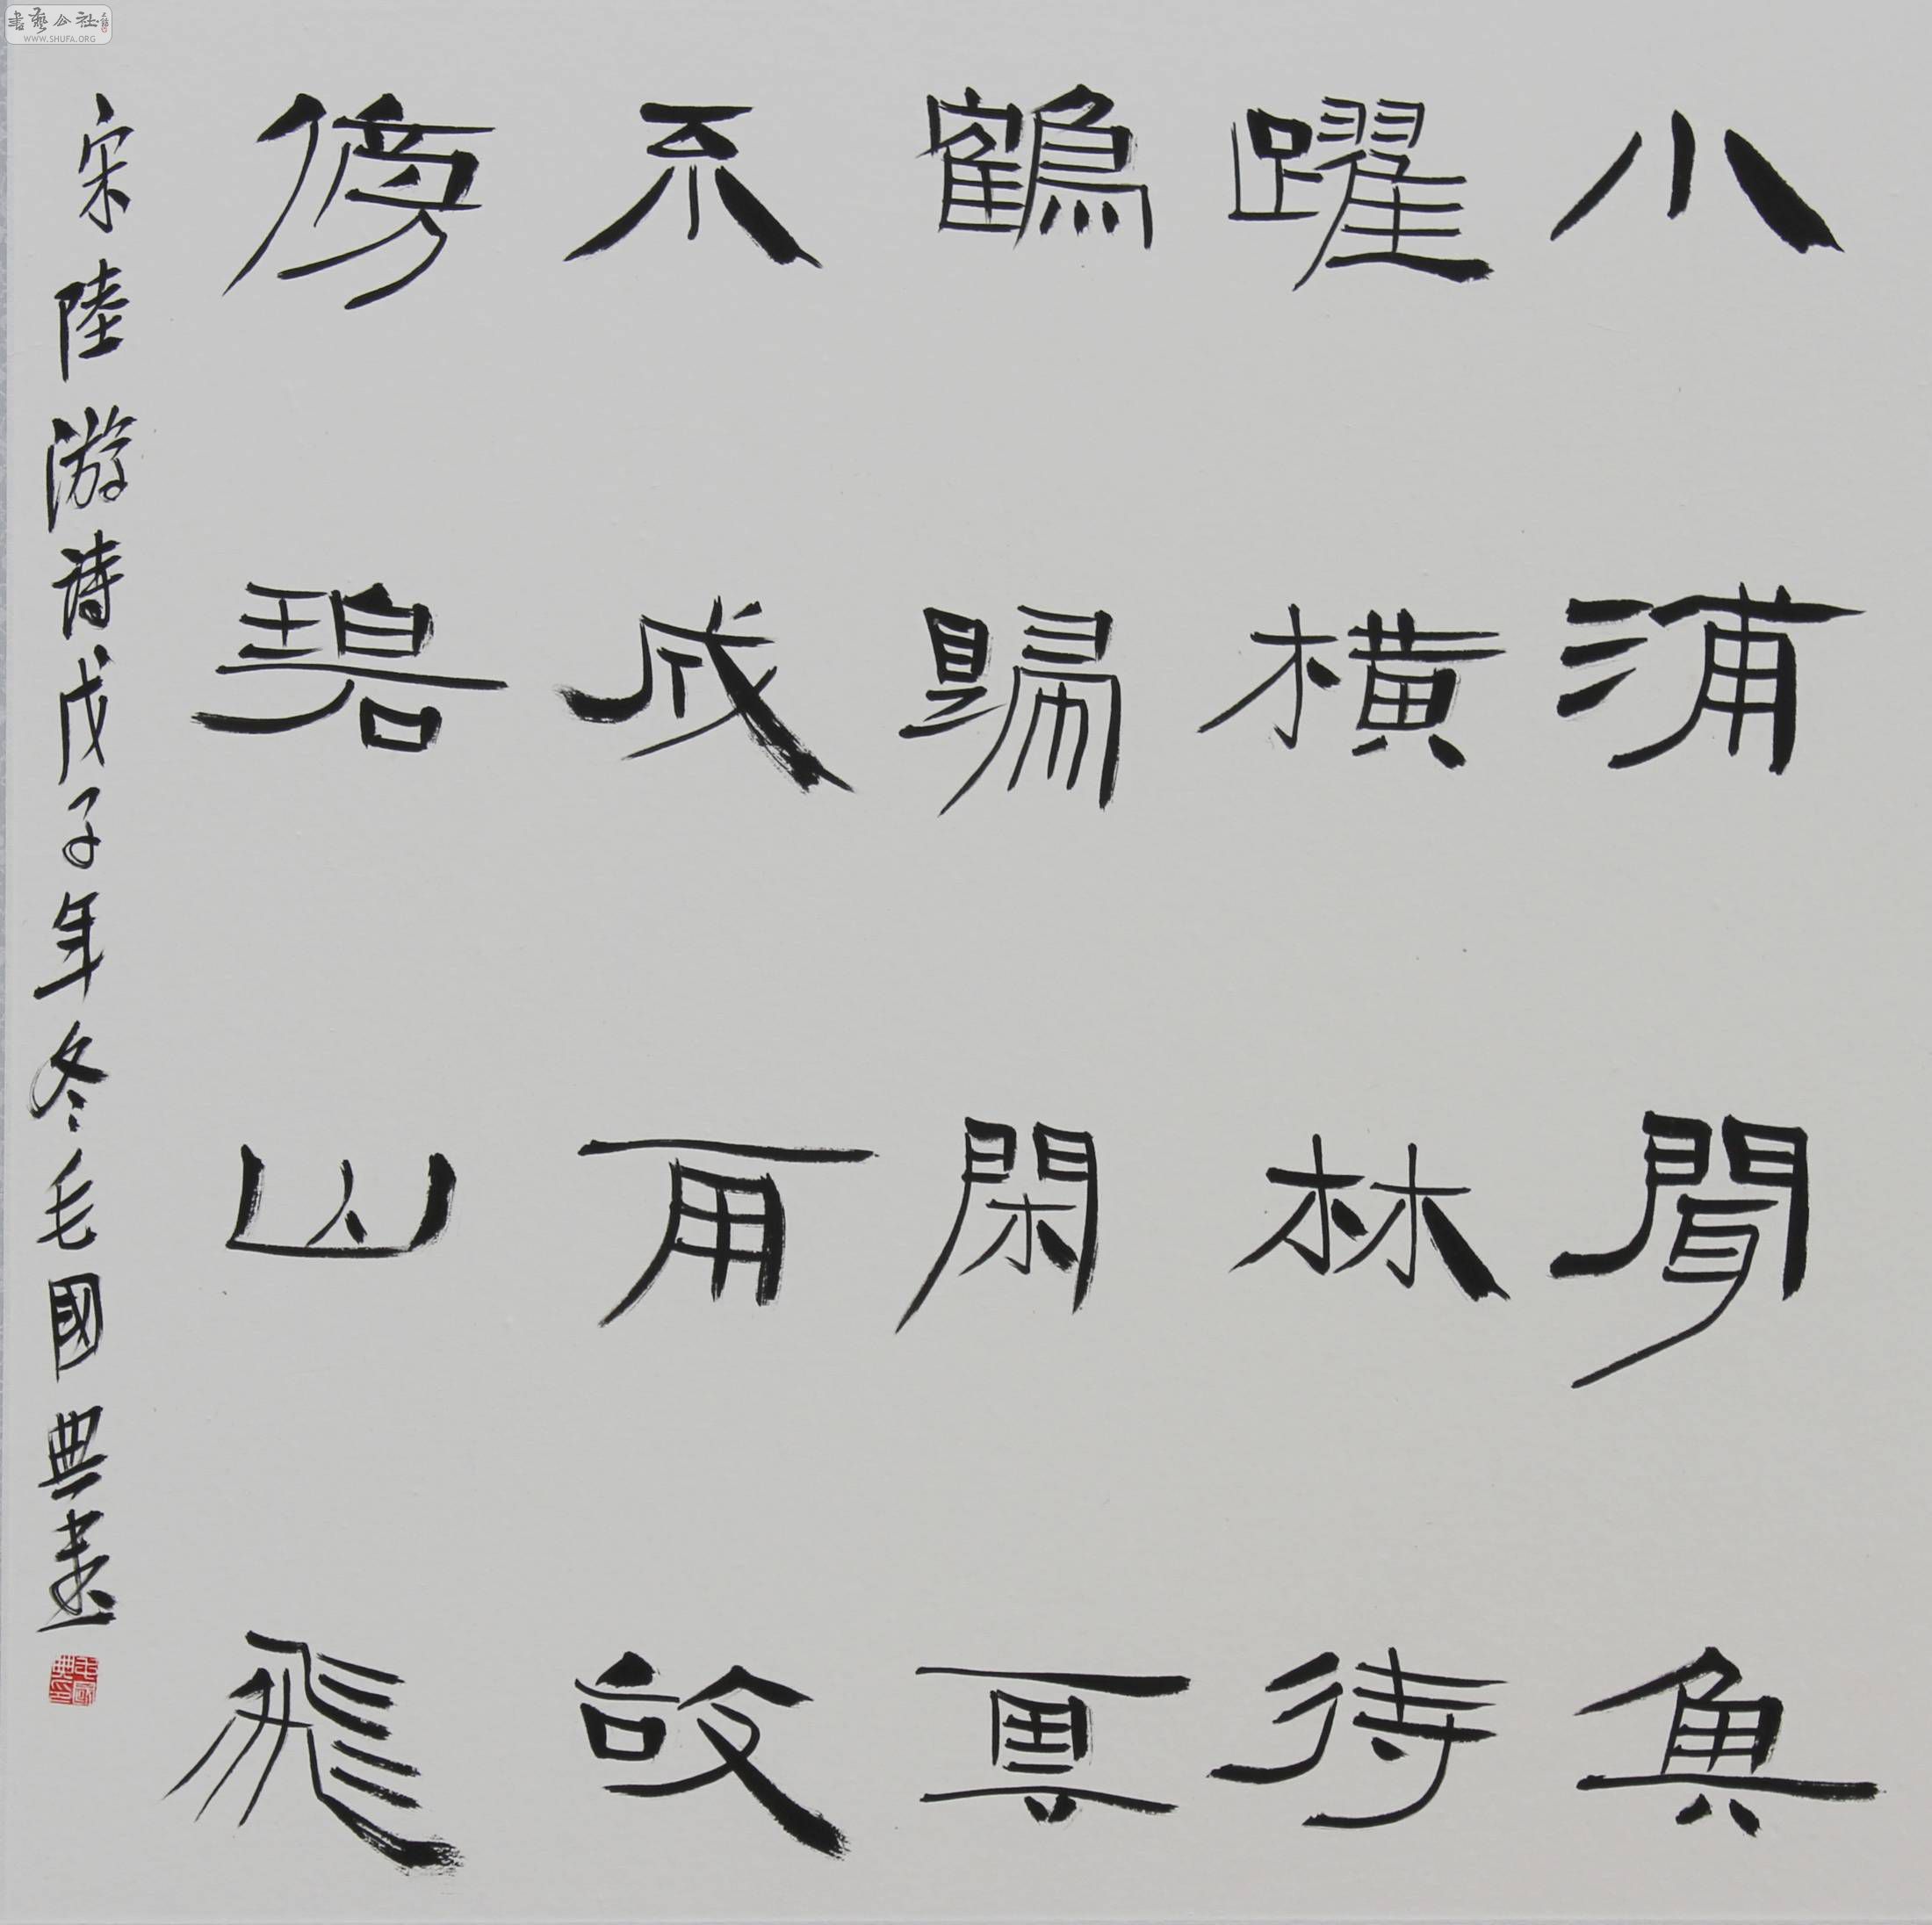 小浦聞魚
躍橫林待
鶴歸閑雲
不成雨故
傍碧山飛
宋陸游詩戊子年冬毛國典書
書藝公社
WWW.SHUFA.ORG